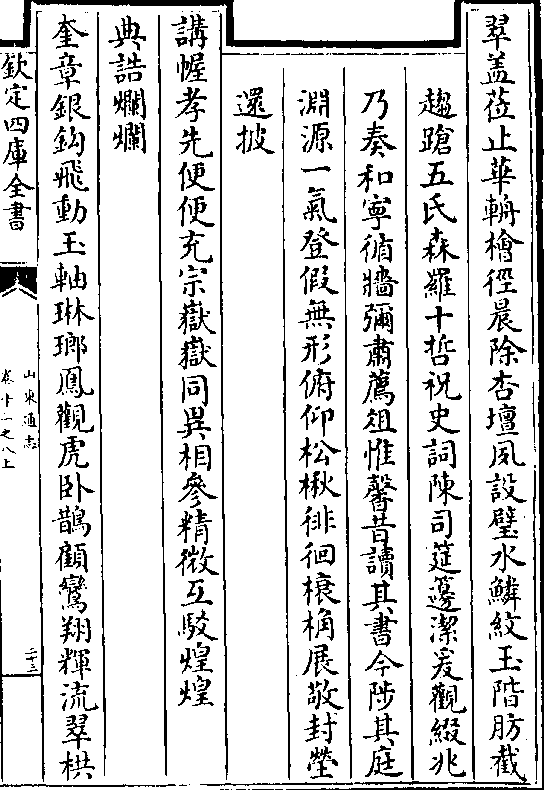 翠盖莅止華輈檜徑晨除杏壇夙設璧水鱗紋玉階肪截
趨蹌五氏森羅十哲祝史詞陳司筵籩潔爰觀綴兆
乃奏和寧循牆彌肅薦俎惟馨昔讀其書今陟其庭
淵源一氣登假無形俯仰松楸徘徊榱桷展敬封塋
還披
講幄孝先便便充宗嶽嶽同異相參精微互駁煌煌
典誥爛爛
奎章銀鈎飛動玉軸琳瑯鳳觀虎卧鵲顧鸞翔輝流翠栱
欽定四庫全書
山東通志
卷十一之八上
二十三